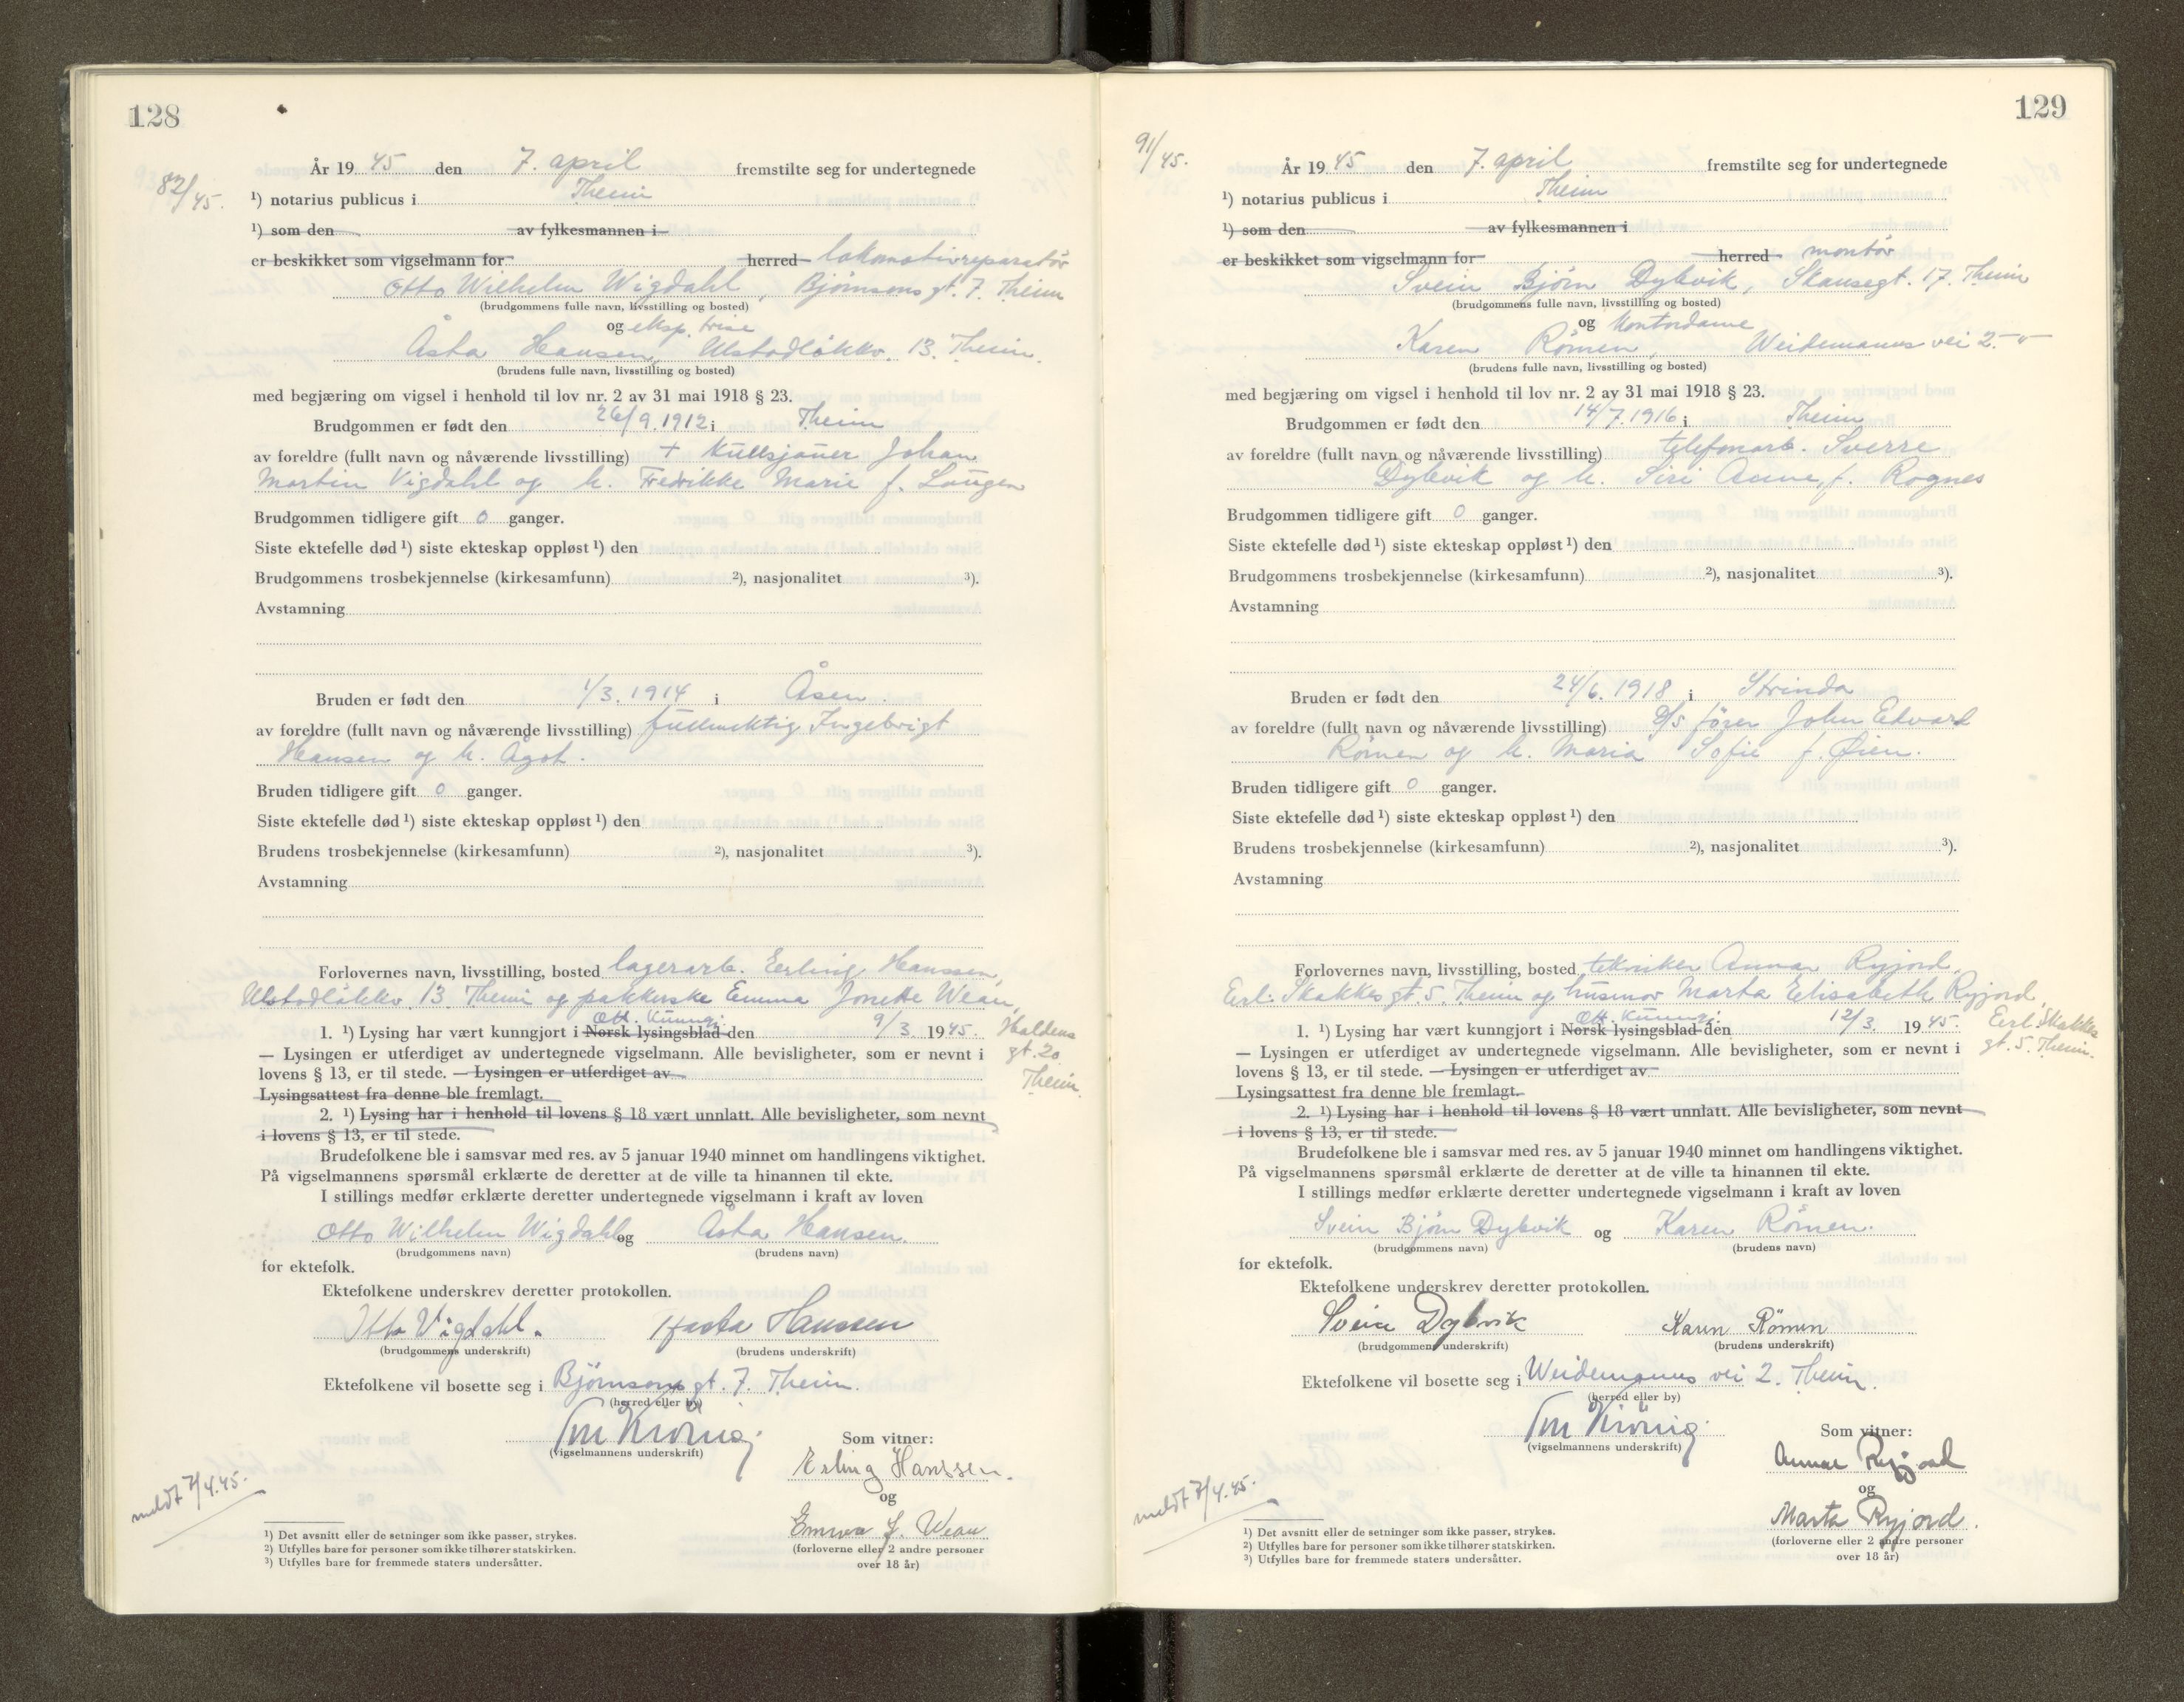 128
82/45.
År 1945 den 7. april fremstilte seg for undertegnede
¹) notarius publicus i Theim
¹) som den av fylkesmannen i
er beskikket som vigselmann for herred lokomotivreparatör
Otto Wilhelm Wigdahl, Bjørnsons gt. 7. Theim
(brudgommens fulle navn, livsstilling og bosted)
og eksp. trise
Åsta Hansen, Ulstadløkkv. 13. Theim.
(brudens fulle navn, livsstilling og bosted)
med begjæring om vigsel i henhold til lov nr. 2 av 31 mai 1918 § 23.
Brudgommen er født den 26/9.1912 i Theim
av foreldre (fullt navn og nåværende livsstilling) + Kullsjauer Johan
Martin Vigdahl og h. Fredrikke Marie f. Laugen
Brudgommen tidligere gift 0 ganger.
Siste ektefelle død ¹) siste ekteskap oppløst ¹) den
Brudgommens trosbekjennelse (kirkesamfunn) ²), nasjonalitet ³).
Avstamning
Bruden er født den 1/3.1914 i Åsen.
av foreldre (fullt navn og nåværende livsstilling) fullmektig Ingebrigt
Hansen og h. Ågot.
Bruden tidligere gift 0 ganger.
Siste ektefelle død ¹) siste ekteskap oppløst ¹) den
Brudens trosbekjennelse (kirkesamfunn) ²), nasjonalitet ³).
Avstamning
Forlovernes navn, livsstilling, bosted lagerarb. Erling Hanssen,
Ulstadløkkv 13. Theim og pakkerske Emma Jonette Wean,
Off. Kunngj.
1. ¹) Lysing har vært kunngjort i Norsk lysingsblad den 9/3. 1945. Haldens
gt. 20
Theim.
— Lysingen er utferdiget av undertegnede vigselmann. Alle bevisligheter, som er nevnt i
lovens § 13, er til stede. — Lysingen er utferdiget av
Lysingsattest fra denne ble fremlagt.
2. ¹) Lysing har i henhold til lovens § 18 vært unnlatt. Alle bevisligheter, som nevnt
i lovens § 13, er til stede.
Brudefolkene ble i samsvar med res. av 5 januar 1940 minnet om handlingens viktighet.
På vigselmannens spørsmål erklærte de deretter at de ville ta hinannen til ekte.
I stillings medfør erklærte deretter undertegnede vigselmann i kraft av loven
Otto Wilhelm Wigdahl og Åsta Hansen.
(brudgommens navn) (brudens navn)
for ektefolk.
Ektefolkene underskrev deretter protokollen.
Otto Vigdahl. Aasta Hanssen
(brudgommens underskrift) (brudens underskrift)
Ektefolkene vil bosette seg i Bjørnsons gt. 7. Theim.
(herred eller by)
(vigselmannens underskrift)
Som vitner:
Erling Hanssen.
og
Emma J. Wean
(forloverne eller 2 andre personer
over 18 år)
meldt 7/4.45.
¹) Det avsnitt eller de setninger som ikke passer, strykes.
²) Utfylles bare for personer som ikke tilhører statskirken.
³) Utfylles bare for fremmede staters undersåtter.
129
91/45.
År 1945 den 7. april fremstilte seg for undertegnede
¹) notarius publicus i Theim
¹) som den av fylkesmannen i
er beskikket som vigselmann for herred montör
Svein Bjørn Dybvik, Skansegt. 17. Theim
(brudgommens fulle navn, livsstilling og bosted)
og kontordame
Karen Römen, Weidemanns vei 2. -"-
(brudens fulle navn, livsstilling og bosted)
med begjæring om vigsel i henhold til lov nr. 2 av 31 mai 1918 § 23.
Brudgommen er født den 14/7.1916 i Theim
av foreldre (fullt navn og nåværende livsstilling) telefonarb. Sverre
Dybvik og h. Siri Anna, f. Rognes
Brudgommen tidligere gift 0 ganger.
Siste ektefelle død ¹) siste ekteskap oppløst ¹) den
Brudgommens trosbekjennelse (kirkesamfunn) ²), nasjonalitet ³).
Avstamning
Bruden er født den 24/6.1918 i Strinda
av foreldre (fullt navn og nåværende livsstilling) D/S fører John Edvard
Römen og h. Maria Sofie f. Øien.
Bruden tidligere gift 0 ganger.
Siste ektefelle død ¹) siste ekteskap oppløst ¹) den
Brudens trosbekjennelse (kirkesamfunn) ²), nasjonalitet ³).
Avstamning
Forlovernes navn, livsstilling, bosted tekniker Annar Ryjord,
Erl. Skakkes gt. 5. Theim og husmor Marta Elisabeth Ryjord,
Off. Kunngj.
1. ¹) Lysing har vært kunngjort i Norsk lysingsblad den 12/3. 1945. Erl. Skakkes
gt. 5. Theim.
— Lysingen er utferdiget av undertegnede vigselmann. Alle bevisligheter, som er nevnt i
lovens § 13, er til stede. — Lysingen er utferdiget av
Lysingsattest fra denne ble fremlagt.
2. ¹) Lysing har i henhold til lovens § 18 vært unnlatt. Alle bevisligheter, som nevnt
i lovens § 13, er til stede.
Brudefolkene ble i samsvar med res. av 5 januar 1940 minnet om handlingens viktighet.
På vigselmannens spørsmål erklærte de deretter at de ville ta hinannen til ekte.
I stillings medfør erklærte deretter undertegnede vigselmann i kraft av loven
Svein Bjørn Dybvik og Karen Römen.
(brudgommens navn) (brudens navn)
for ektefolk.
Ektefolkene underskrev deretter protokollen.
Svein Dybvik Karen Römen
(brudgommens underskrift) (brudens underskrift)
Ektefolkene vil bosette seg i Weidemanns vei 2. Theim.
(herred eller by)
(vigselmannens underskrift)
Som vitner:
Annar Ryjord
og
Marta Ryjord.
(forloverne eller 2 andre personer
over 18 år)
meldt 7/4.45.
¹) Det avsnitt eller de setninger som ikke passer, strykes.
²) Utfylles bare for personer som ikke tilhører statskirken.
³) Utfylles bare for fremmede staters undersåtter.